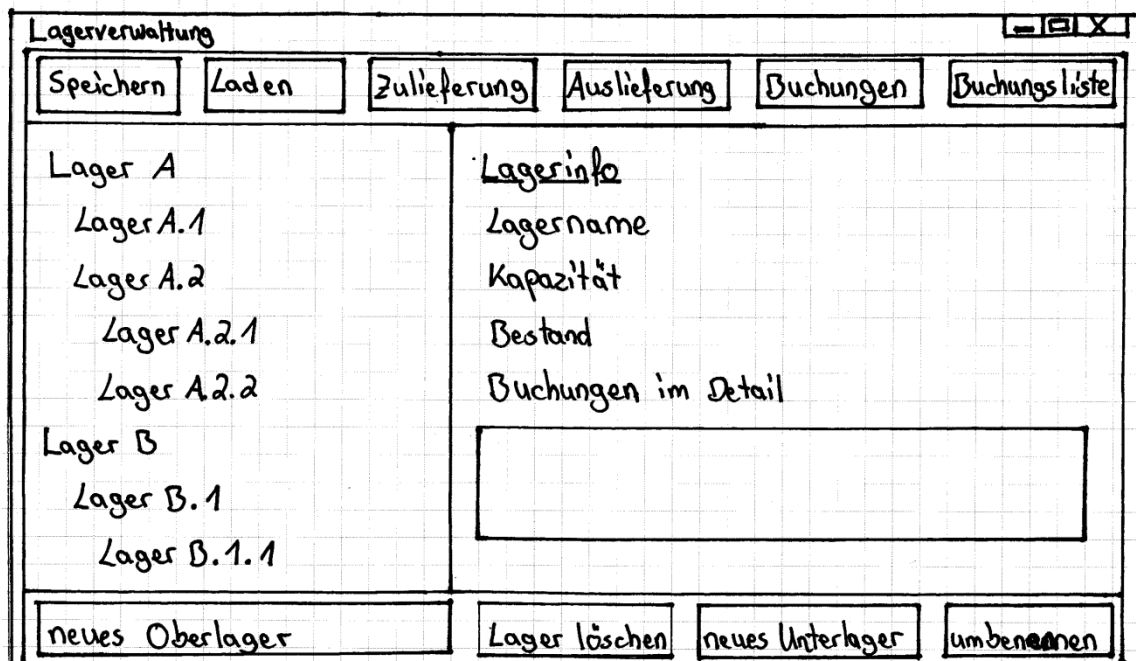 Lagerverwaltung
Speichern Laden Zulieferung Auslieferung Buchungen Buchungsliste
Lager A
Lager A.1
Lager A.2
Lager A.2.1
Lager A.2.2
Lager B
Lager B.1
Lager B.1.1
Lagerinfo
Lagername
Kapazität
Bestand
Buchungen im Detail
neues Oberlager Lager löschen neues Unterlager umbenennen